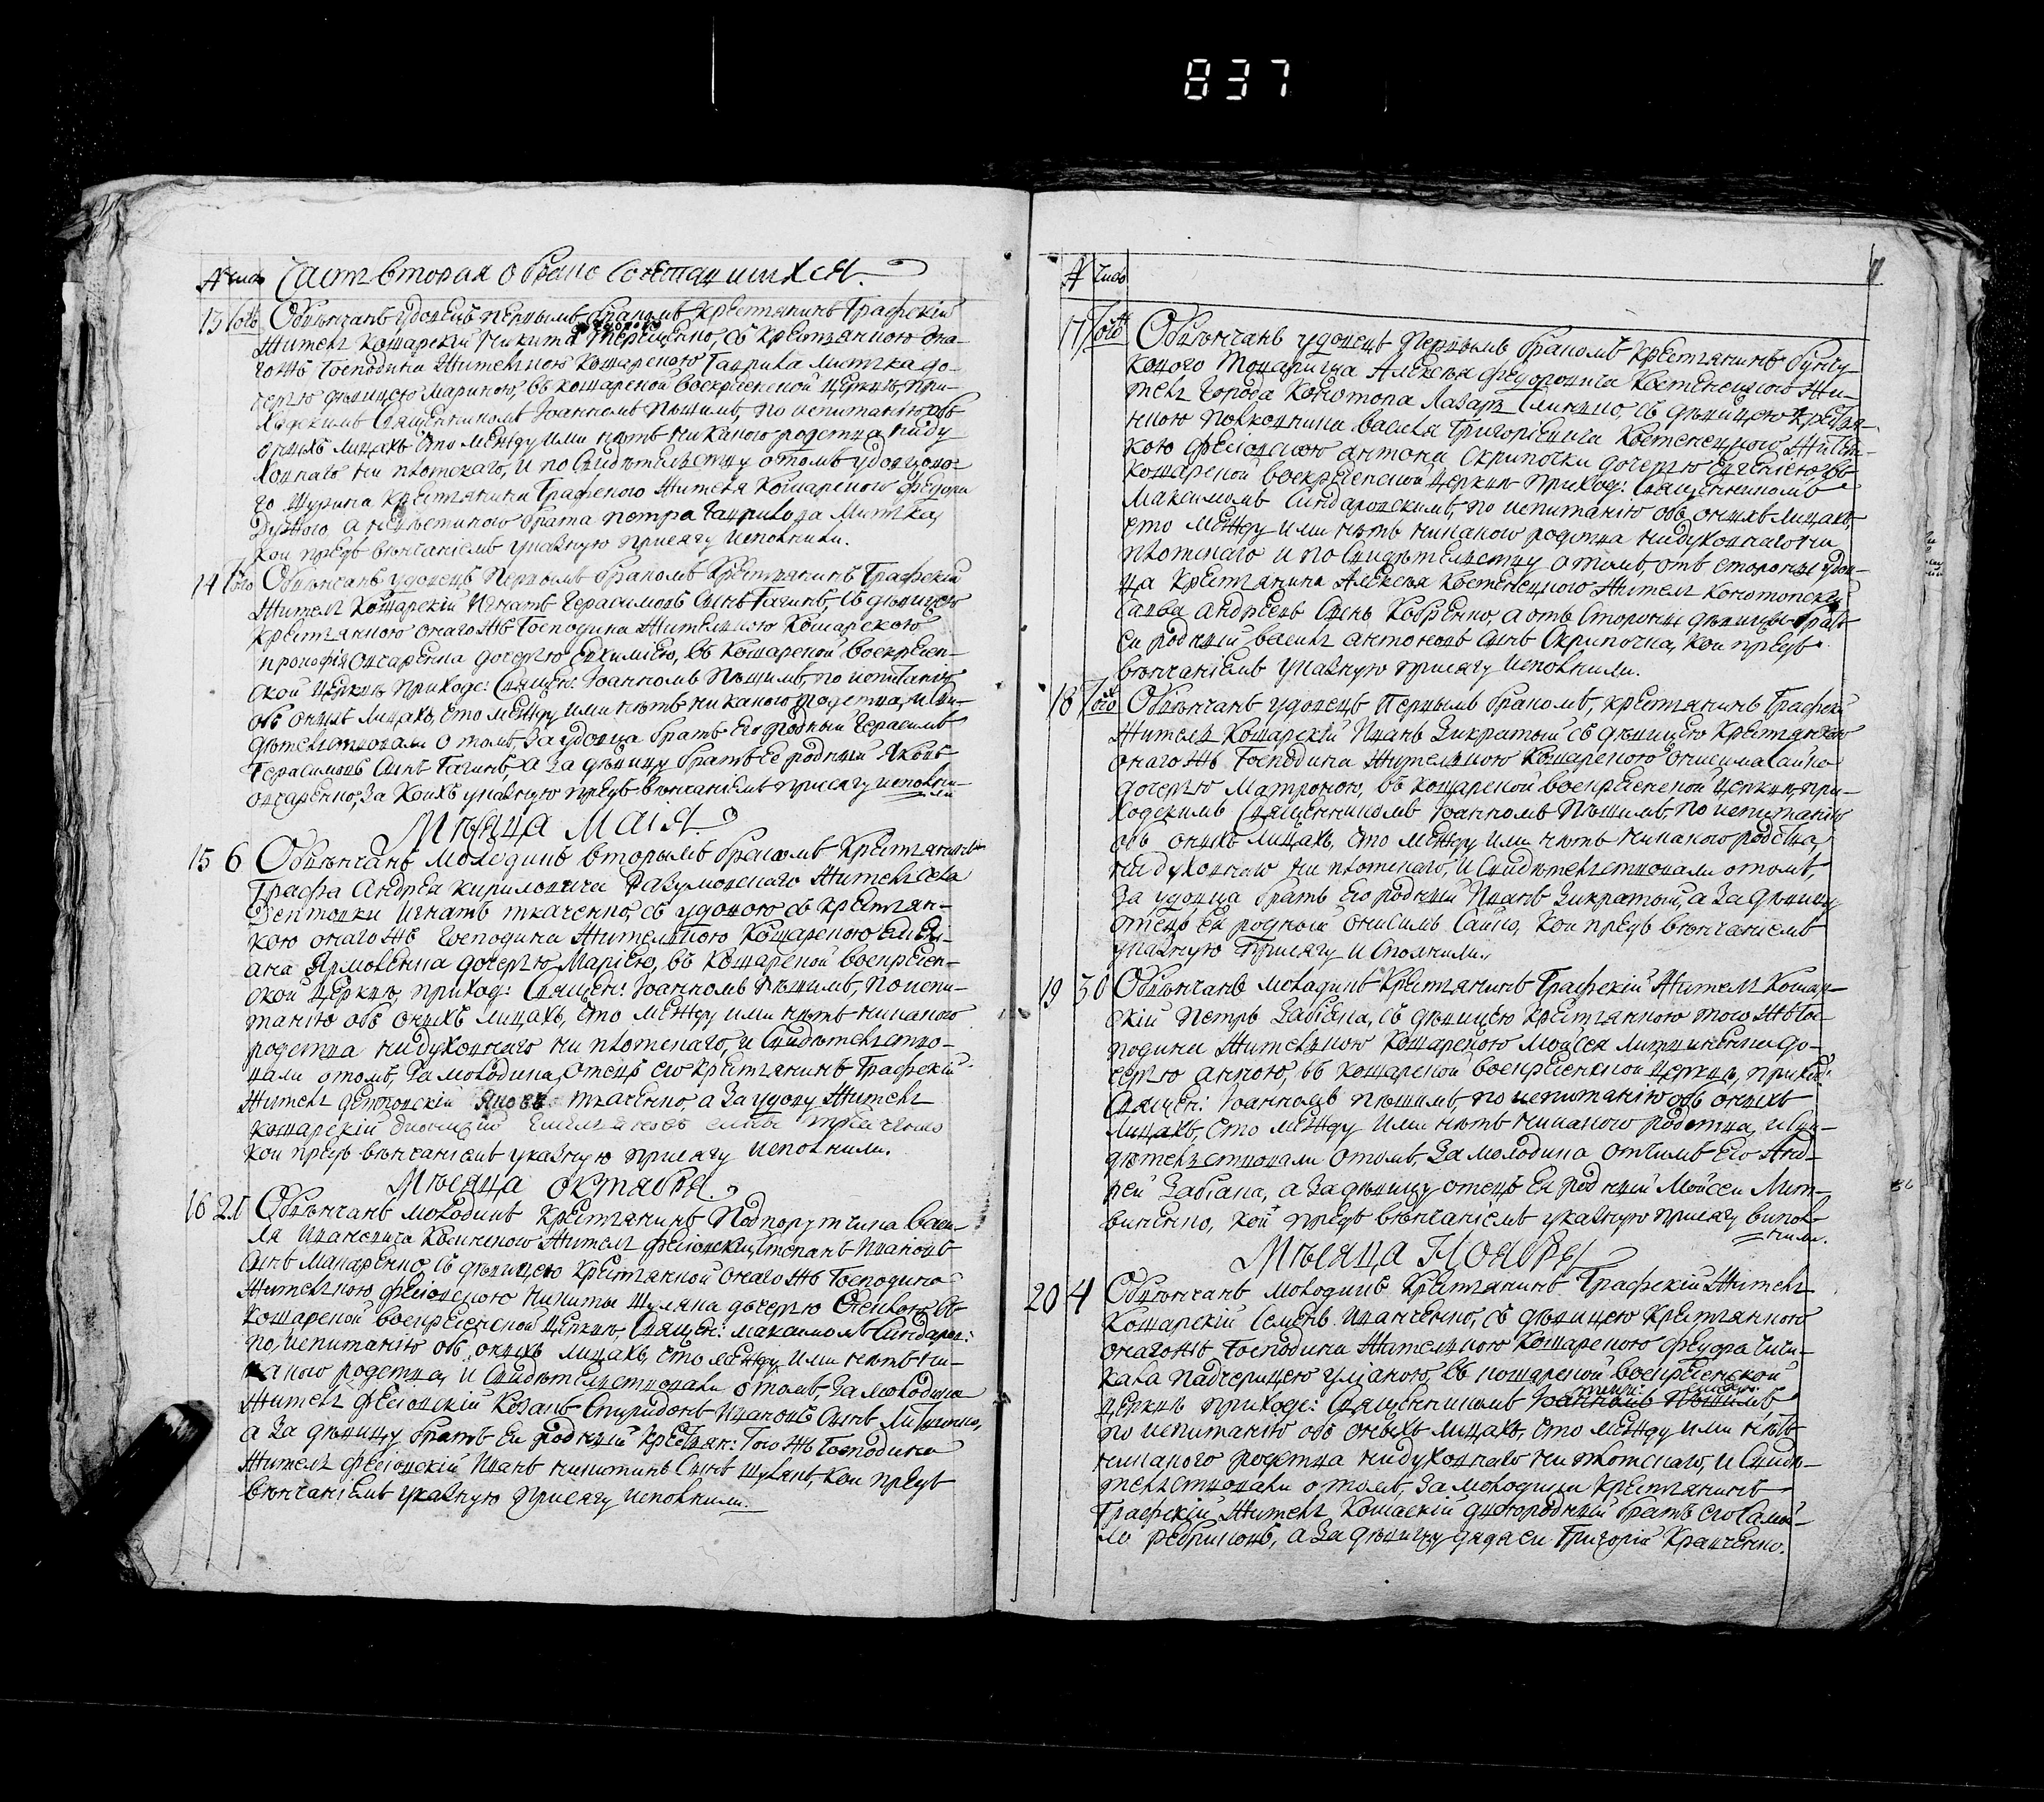 837
№ Число Часть вторая о бракосочетавшихся
13 того Обвѣнчанъ удовецъ первымъ бракомъ крестянинъ Графскій
житель кошарскій Никита Терещенко, съ крестянкою она-
го жъ Господина жителкою кошарскою Гаврила Митка до-
черю дѣвицею Мариною, въ кошарской воскресенской церквѣ, при-
ходскимъ священникомъ Іоанномъ Пѣшимъ, по испитанію объ
онихъ лицахъ что между ими нѣтъ никакого родства ниду
ховнаго ни плотскаго, и по свидѣтелству о томъ удовцово-
го шурина крестянина Графского жителя кошарского Федора
а невѣстиного брата петра Гаврилова Митка,
кои предъ вѣнчаніемъ указную присягу исполнили.
14 того Обвѣнчанъ удовецъ первымъ бракомъ крестянинъ Графскій
жителъ кошарскій Игнатъ Герасимовъ синъ Гагинъ, съ дѣвицею
крестянкою онаго жъ Господина жителкою кошарскою
прокофія Овчаренка дочерю Евхиміею, въ кошарской воскресен-
ской церквѣ приходс: священ: Іоанномъ Пѣшимъ, по испитанію
объ онихъ лицахъ, что между ими нѣтъ никакого родства, и сви-
дѣтелствовали о томъ, за удовца братъ его родный Герасимъ
Герасимовъ синъ Гагинъ, а за дѣвицу братъ ее родный Яковъ
овчаренко, за коихъ указную предъ вѣнчаніемъ присягу исполни-
ли
Мѣсяца Маія
15 6 Обвѣнчанъ молодикъ вторымъ бракомъ крестянинъ
Графа Андрея кириловича Разумовского жителъ села
Дептовки Игнатъ ткаченко, съ удовою съ крестян-
кою онаго жъ господина жителкою кошарскою Емел-
яна Ярмоленка дочерю Маріею, въ кошарской воскресен-
ской церквѣ приход: священ: Іоанномъ Пѣшимъ, по испи-
танію объ онихъ лицахъ, что между ими нѣтъ никакого
родства нидуховнаго ни плотскаго, и свидѣтелство-
вали о томъ, за молодика, отецъ его крестянинъ Графскій
житель дептовскій Яковъ ткаченко, а за удову житель
кошарскій
кои предъ вѣнчаніемъ указную присягу исполнили.
Мѣсяца октября
16 21 Обвѣнчанъ молодикъ крестянинъ Подпорутчика Васи-
ля Ивановича житель фесовскій Степанъ Ивановъ
синъ Макаренко, съ дѣвицею крестянкой онаго жъ Господина
жителкою фесовскою никиты Шуляка дочерю Евгенією въ
кошарской воскресенской церквѣ, священ: максимомъ Синдаров:
по испитанію объ онихъ лицахъ, что между ими нѣтъ ни-
какого родства, и свидѣтелствовали о томъ, за молодика
житель фесовскій козакъ Спиридонъ Ивановъ синъ
а за дѣвицу братъ ея родный крестян: того жъ Господина
жителъ фесовскій Иванъ никитинъ синъ Шулякъ, кои предъ
вѣнчаніемъ указную присягу исполнили.
№ Число
17 того Обвѣнчанъ удовецъ первымъ бракомъ крестянинъ бунчу-
кового товарища Алексѣя федоровича Костенецкого жи-
тель города конотопа Лазаръ с дѣвицею крестян-
кою полковника василя Григоріевича Костенецкого жител-
кою фесовскою антона Скрипочки дочерю Евгеніею, въ
кошарской воскресенской церквѣ приход: священникомъ
максимомъ Синдаровскимъ, по испитанію объ онихъ лицахъ
что между ими нѣтъ никакого родства нидуховнаго ни
плотскаго и по свидѣтелству о томъ, отъ сторони удов-
ца крестянина Алексѣя Костенецкого жителъ конотопскій
Савва андреевъ синъ а отъ сторони дѣвицы братъ
ея родный василъ антоновъ синъ Скрипочка, кои предъ
вѣнчаніемъ указную присягу исполнили.
18 того Обвѣнчанъ удовецъ первымъ бракомъ, крестянинъ Графскій
жителъ кошарскій Иванъ Закратый съ дѣвицею крестянкою
онаго жъ Господина жителкою кошарскою онисима Сайка
дочерю Матроною, въ кошарской воскресенской церквѣ при-
ходскимъ священникомъ Іоанномъ Пѣшимъ, по испитанію
объ онихъ лицахъ, что между ими нѣтъ никакого родства,
нидуховнаго ни плотского, и свидѣтелствовали о томъ,
за удовца братъ его родный Иванъ Закратый, а за дѣвицу
отецъ ея родный онисимъ Сайко, кои предъ вѣнчаніемъ
указную присягу исполнили.
19 30 Обвѣнчанъ молодикъ крестянинъ Графскій житель кошар-
скій Петръ Забіяка, съ дѣвицею крестянкою того жъ Го-
сподина жителкою кошарскою Мойсея Литвиненка до-
черю анною, въ кошарской воскресенской церквѣ, приход:
священ: Іоанномъ Пѣшимъ, по испитанію объ онихъ
лицахъ, что между ими нѣтъ никакого родства, и сви-
дѣтелствовали о томъ, за молодика отчимъ его Анд-
рей Забіяка, а за дѣвицу отецъ ея родный Мойсей Лит-
виненко, кои предъ вѣнчаніемъ указную присягу випол-
нили.
Мѣсяца Ноября
20 4 Обвѣнчанъ молодикъ крестянинъ Графскій житель
кошарскій Семенъ Иванченко, съ дѣвицею крестянкою
онаго жъ Господина жителкою кошарскою федора
падчерицею уліаною, въ кошарской воскресенской
церквѣ приходс: священникомъ Іоанномъ Пѣшимъ
по испитанію объ онихъ лицахъ, что между ими нѣтъ
никакого родства нидуховнаго ни плотскаго, и свидѣ-
телствовали о томъ, за молодика крестянинъ
Графскій житель кошаскій двоюродный братъ его Самой-
ло а за дѣвицу дядя еи Григорій Кравченко.